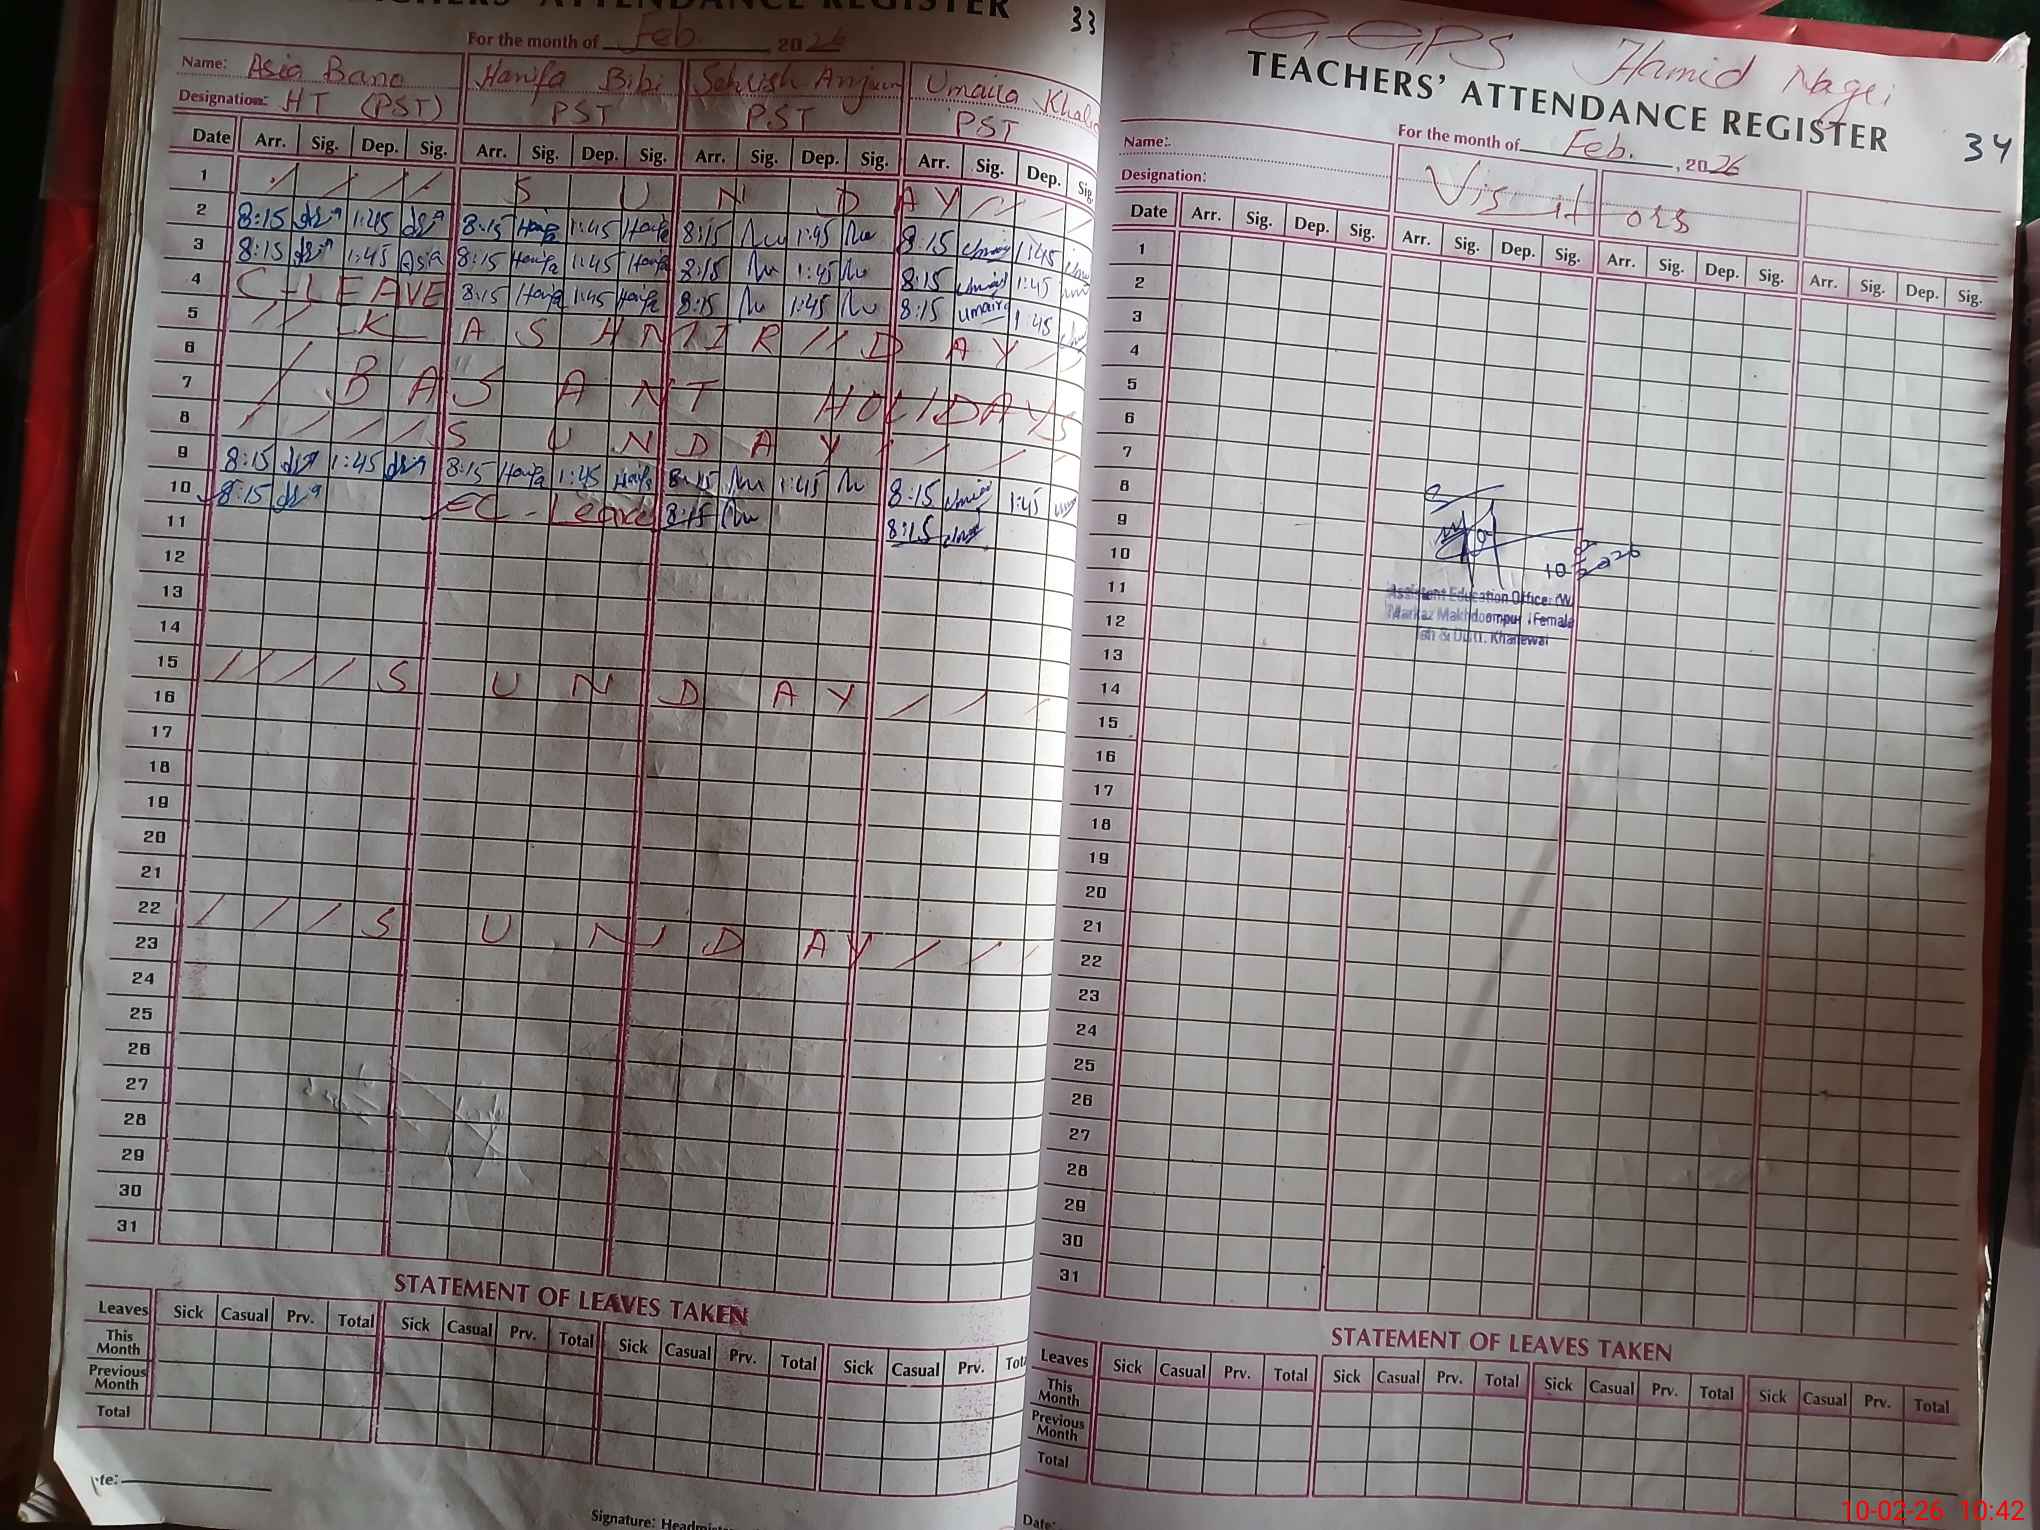 TEACHERS' ATTENDANCE REGISTER
33
For the month of Feb. 2026
Name: Asia Bano Hanifa Bibi Sehrish Anjum Umaira
Designation: HT (PST) PST PST PST
Date Arr. Sig. Dep. Sig. Arr. Sig. Dep. Sig. Arr. Sig. Dep. Sig. Arr. Sig. Dep. Sig.
1 S U N D A Y
2 8:15 1:45 8:15 Hanifa 1:45 Hanifa 8:15 1:45 8:15 1:45
3 8:15 1:45 Asia 8:15 Hanifa 1:45 Hanifa 8:15 1:45 8:15 1:45
4 C-LEAVE 8:15 Hanifa 1:45 Hanifa 8:15 1:45 8:15 umaira 1:45
5 K A S H M I R D A Y
6
7 B A S A N T HOLIDAYS
8 S U N D A Y
9 8:15 1:45 8:15 Hanifa 1:45 Hanifa 8:15 1:45 8:15 1:45
10 8:15 C-Leave 8:15 8:15
11
12
13
14
15 S U N D A Y
16
17
18
19
20
21
22 S U N D A Y
23
24
25
26
27
28
29
30
31
STATEMENT OF LEAVES TAKEN
Leaves Sick Casual Prv. Total Sick Casual Prv. Total Sick Casual Prv. Total Sick Casual Prv.
This Month
Previous Month
Total
Signature:
GGPS Hamid Nagei
TEACHERS' ATTENDANCE REGISTER
34
For the month of Feb., 2026
Name:
Designation:
Visitors
Date Arr. Sig. Dep. Sig. Arr. Sig. Dep. Sig. Arr. Sig. Dep. Sig. Arr. Sig. Dep. Sig.
1
2
3
4
5
6
7
8
9
10
11
12
13
14
15
16
17
18
19
20
21
22
23
24
25
26
27
28
29
30
31
10-2-2026
Assistent Education Officer (W)
Markaz Makhdoompur (Female
Teh & Distt. Khanewal
STATEMENT OF LEAVES TAKEN
Leaves Sick Casual Prv. Total Sick Casual Prv. Total Sick Casual Prv. Total Sick Casual Prv. Total
This Month
Previous Month
Total
Date:
10-02-26 10:42